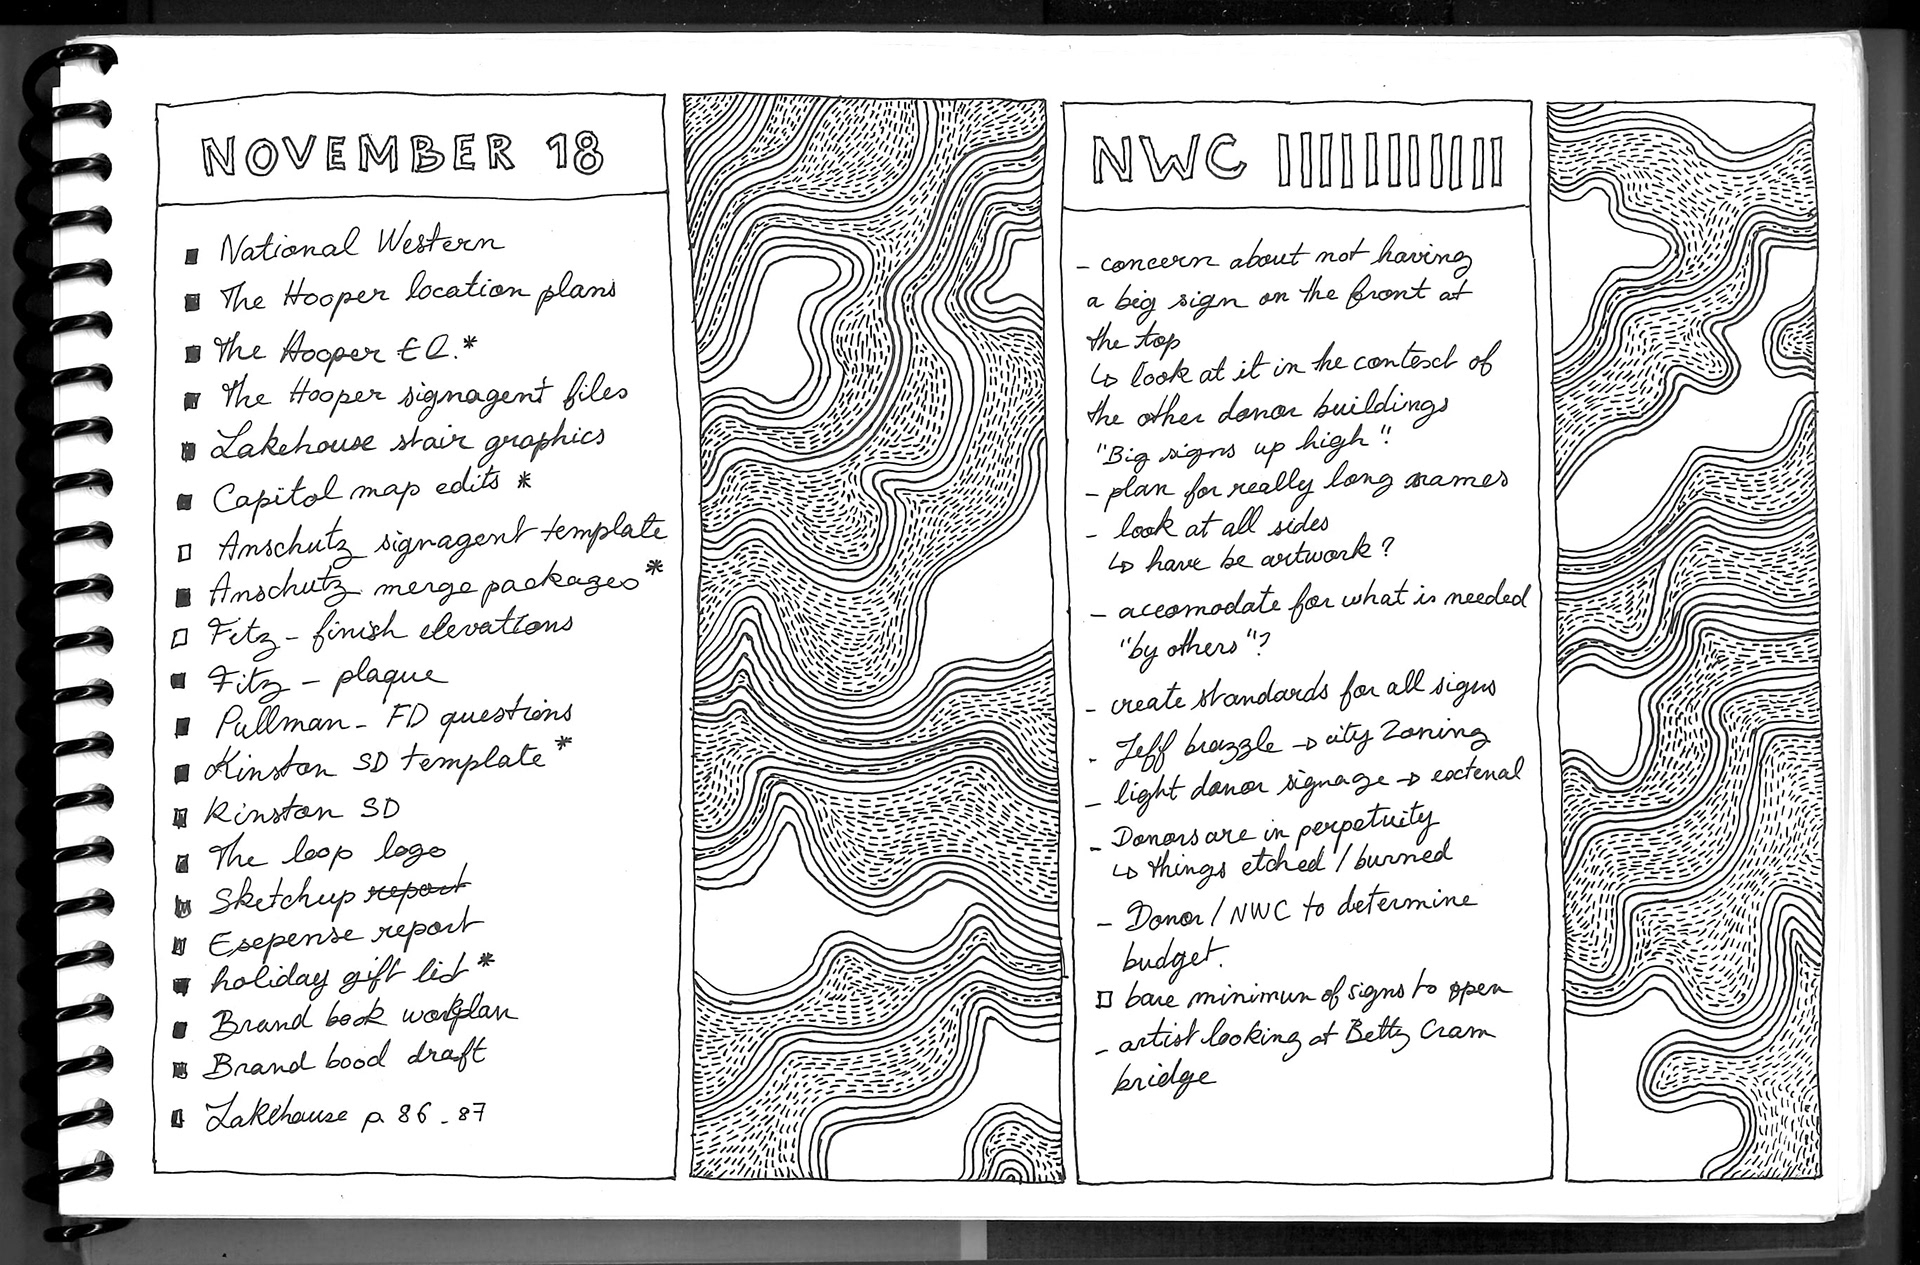 NOVEMBER 18
National Western
The Hooper location plans
The Hooper EC.*
The Hooper signagent files
Lakehouse stair graphics
Capitol map edits *
Anschutz signagent template
Anschutz merge packages*
Fitz - finish elevations
Fitz - plaque
Pullman - FD questions
Kinston SD template*
Kinston SD
The loop logo
Sketchup report
Expense report
holiday gift list*
Brand book workplan
Brand bood draft
Lakehouse p. 86 - 87
NWC
- concern about not having
a big sign on the front at
the top
↳ look at it in the context of
the other donor buildings
"Big signs up high".
- plan for really long names
- look at all sides
↳ have be artwork?
- accomodate for what is needed
"by others"?
- create standards for all signs
- Jeff brazzle → city Zoning
- light donor signage → extenal
- Donors are in perpetuity
↳ things etched / burned
- Donor / NWC to determine
budget.
□ bare minimun of signs to open
- artist looking at Betty Cram
bridge